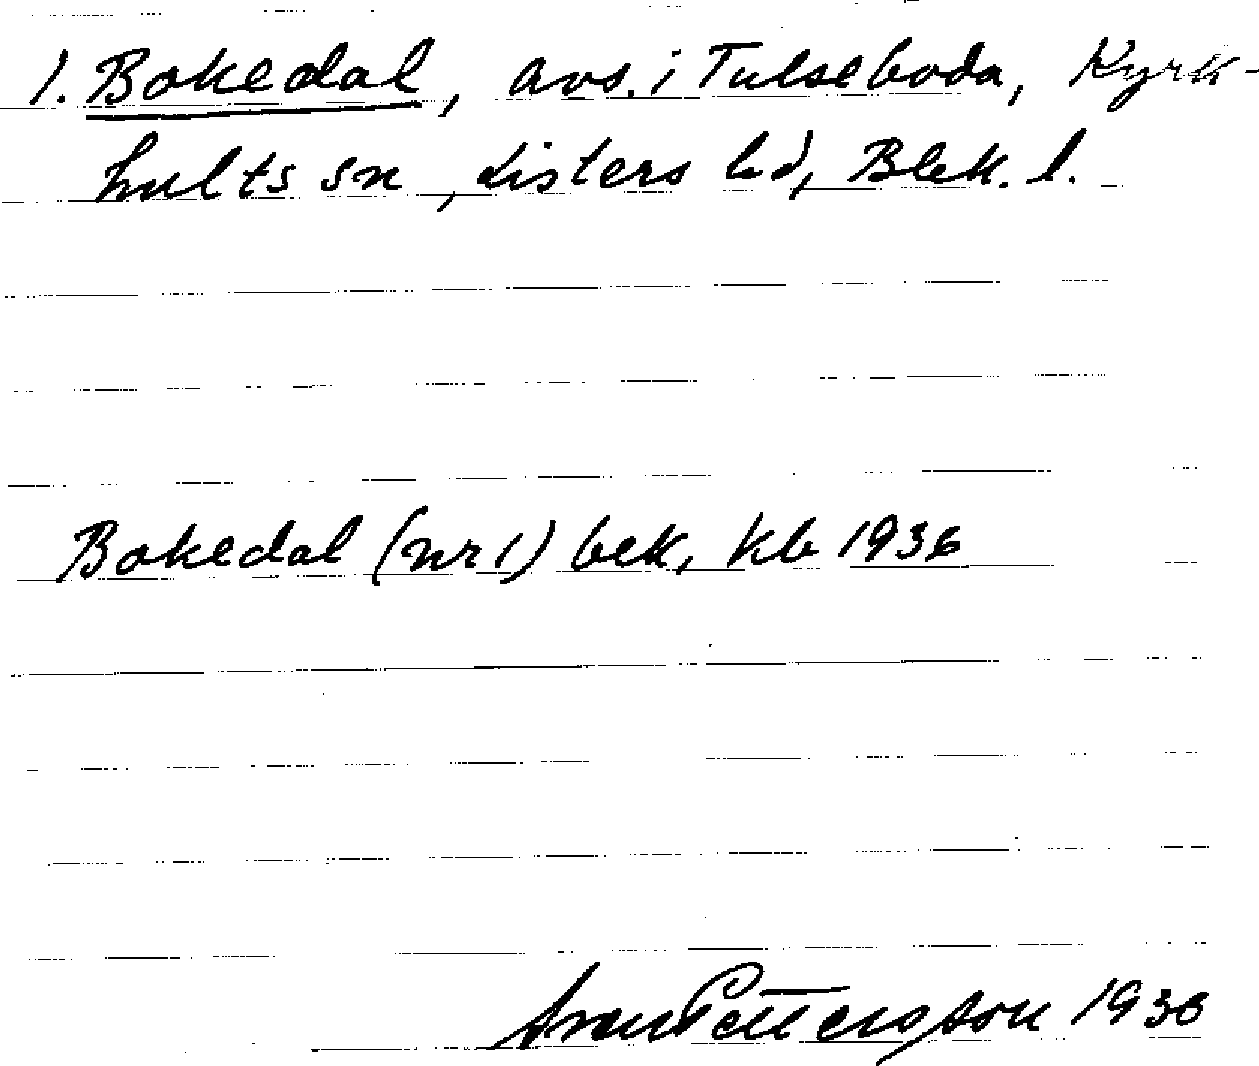 1. Bokedal, avs. i Tulseboda, Kyrk-
hults sn, Listers hd, Blek. l.
Bokedal (nr 1) bek, kb 1936
Ivan Pettersson 1936